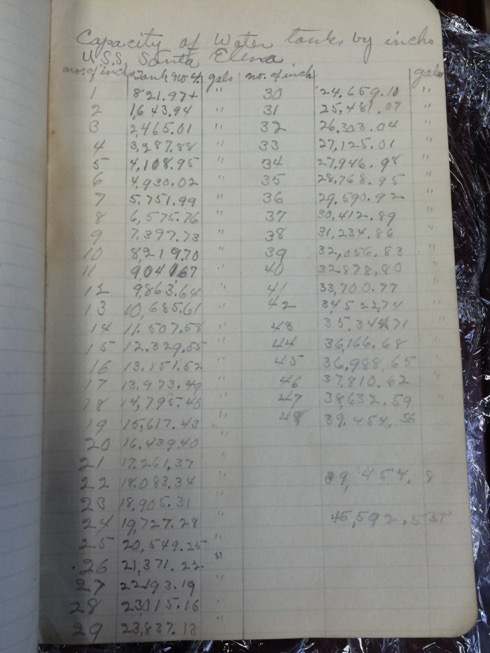 Capacity of Water tanks by inches
U.S.S. Santa Elena
nos of inch tank no. 4 gals no. of inch gals
1 821.97+ 30 24,659.10 "
2 1,643.94 " 31 25,481.07 "
3 2,465.01 " 32 26,303.04 "
4 3,287.88 " 33 27,125.01 "
5 4,108.95 " 34 27,946.98 "
6 4,930.02 " 35 28,768.95 "
7 5,751.99 " 36 29,590.92 "
8 6,575.76 " 37 30,412.89 "
9 7,397.73 " 38 31,234.86 "
10 8,219.70 " 39 32,056.83 "
11 9041.67 " 40 32,878.80 "
12 9,863.64 " 41 33,700.77 "
13 10,685.61 " 42 34,522.74 "
14 11,507.58 " 43 35,344.71 "
15 12,329.55 " 44 36,166.68 "
16 13,151.52 " 45 36,988.65 "
17 13,973.49 " 46 37,810.62 "
18 14,795.45 " 47 38,632.59 "
19 15,617.43 " 48 39,454.56
20 16,439.40 "
21 17,261.37 "
22 18,083.34 " 39,454.8
23 18,905.31 "
24 19,727.28 " 45,592.5
25 20,549.25 "
26 21,371.22 "
27 22,193.19 "
28 23,015.16 "
29 23,837.13 "